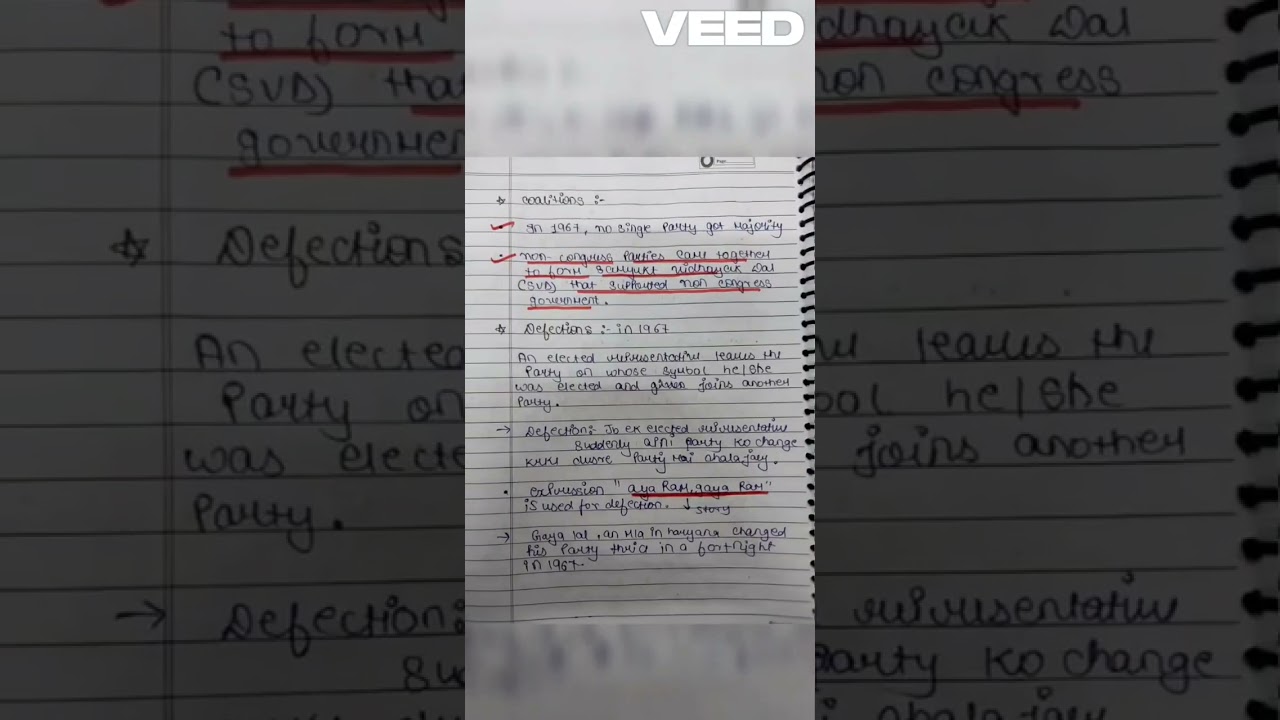 VEED
Page
☆ Coalitions :-
• In 1967, no single Party got Majority
• non-congress Parties came together
to form Samyukt vidhayak Dal
(SVD) that supported non congress
government.
☆ Defections :- in 1967
An elected representative leaves the
Party on whose symbol he/she
was elected and joins another
Party.
→ Defection:- Jb ek elected representative
suddenly apni party ko change
krke dusre Party mai chala jaey.
• expression "aya Ram, gaya Ram"
is used for defection. ↓ story
→ Gaya lal, an Mla in haryana changed
his Party thric in a fortnight
in 1967.